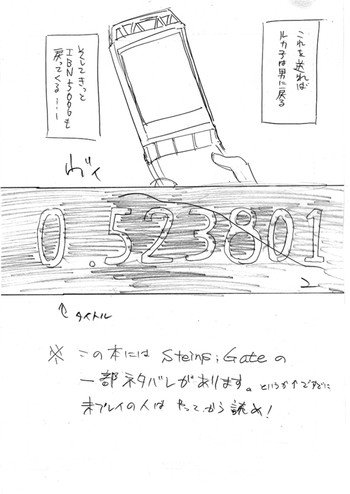 これを送れば
ルカ子は男に戻る
そしてきっと
IBN5100も
戻ってくる……
ヴィ
0.523801
↑
タイトル
※ この本には Steins;Gateの
一部ネタバレがあります。
未プレイの人は やってから読め!